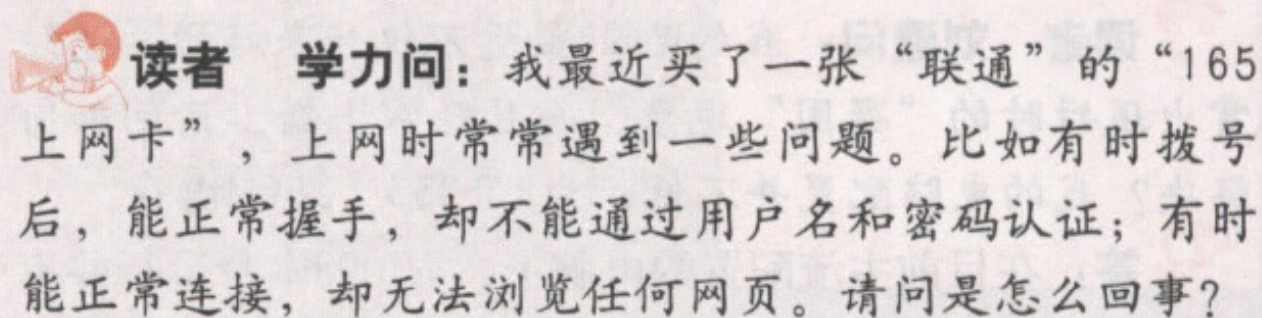 读者 学力问：我最近买了一张“联通”的“165
上网卡”，上网时常常遇到一些问题。比如有时拨号
后，能正常握手，却不能通过用户名和密码认证；有时
能正常连接，却无法浏览任何网页。请问是怎么回事？